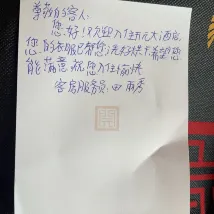 尊敬的客人:
您好!欢迎入住五元大酒店,
您的衣服已帮您洗好烘干希望您
能满意.祝您入住愉快
客房服务员:田雨秀